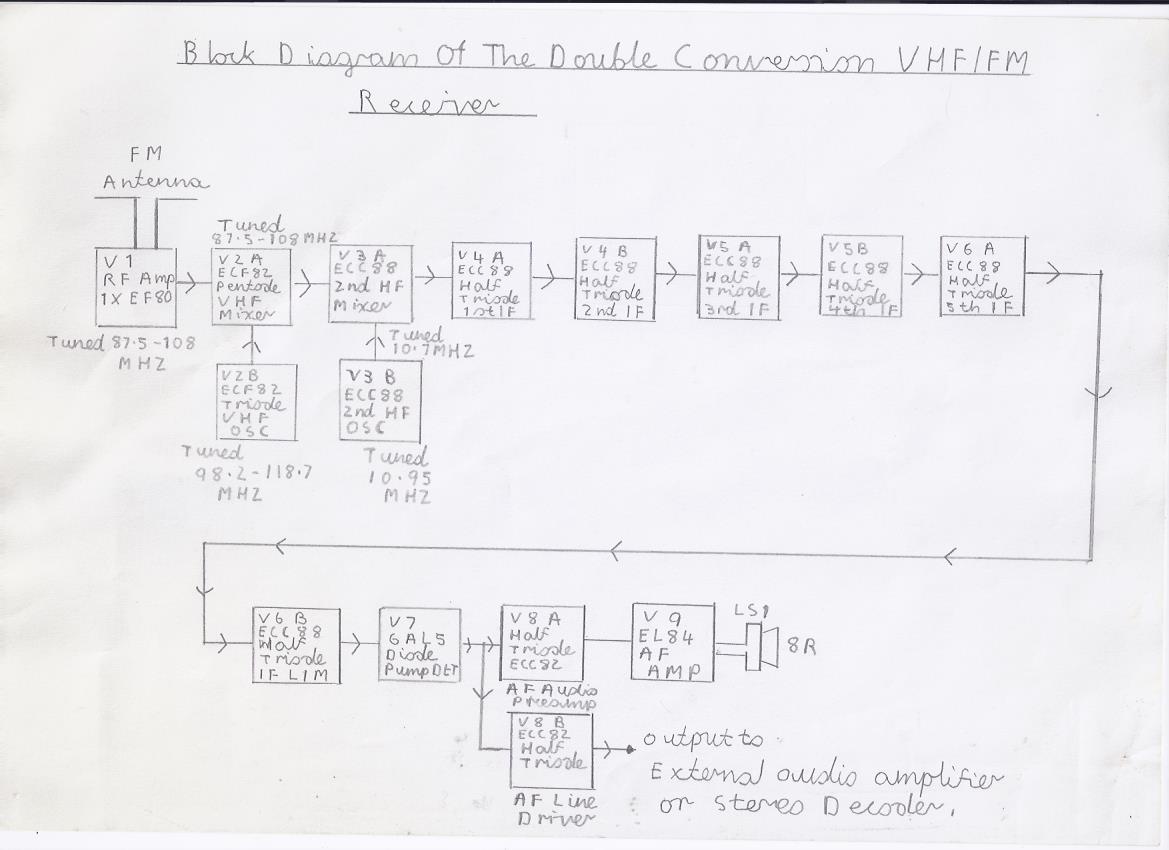 Block Diagram Of The Double Conversion VHF/FM
Receiver
FM
Antenna
V1
RF Amp
1X EF80
Tuned 87.5-108
MHZ
Tuned
87.5-108MHZ
V2A
ECF82
Pentode
VHF
Mixer
V2B
ECF82
Triode
VHF
OSC
Tuned
98.2-118.7
MHZ
V3A
ECC88
2nd HF
Mixer
Tuned
10.7MHZ
V3B
ECC88
2nd HF
OSC
Tuned
10.95
MHZ
V4A
ECC88
Half
Triode
1st IF
V4B
ECC88
Half
Triode
2nd IF
V5A
ECC88
Half
Triode
3rd IF
V5B
ECC88
Half
Triode
4th IF
V6A
ECC88
Half
Triode
5th IF
V6B
ECC88
Half
Triode
IF LIM
V7
6AL5
Diode
Pump DET
V8A
Half
Triode
ECC82
AF Audio
Preamp
V9
EL84
AF
AMP
LS1
8R
V8B
ECC82
Half
Triode
AF Line
Driver
output to
External audio amplifier
or stereo Decoder.